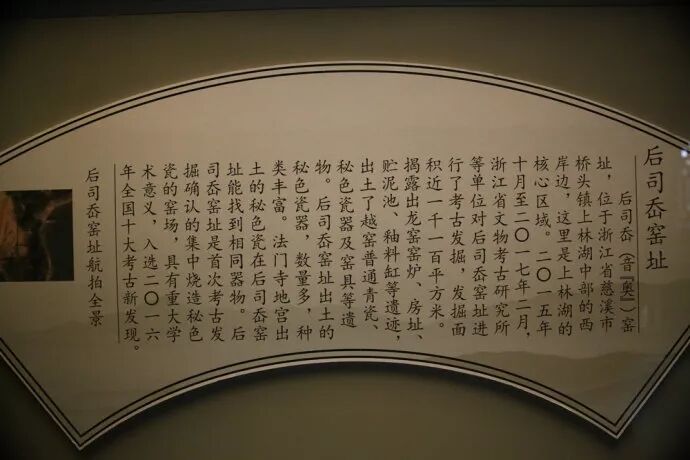 后司岙窑址
后司岙（音『奥』）窑
址，位于浙江省慈溪市
桥头镇上林湖中部的西
岸边，这里是上林湖的
核心区域。二〇一五年
十月至二〇一七年二月，
浙江省文物考古研究所
等单位对后司岙窑址进
行了考古发掘，发掘面
积近一千一百平方米。
揭露出龙窑窑炉、房址、
贮泥池、釉料缸等遗迹，
出土了越窑普通青瓷、
秘色瓷器及窑具等遗
物。后司岙窑址出土的
秘色瓷器，数量多，种
类丰富。法门寺地宫出
土的秘色瓷在后司岙窑
址能找到相同器物。后
司岙窑址是首次考古发
掘确认的集中烧造秘色
瓷的窑场，具有重大学
术意义，入选二〇一六
年全国十大考古新发现。
后司岙窑址航拍全景